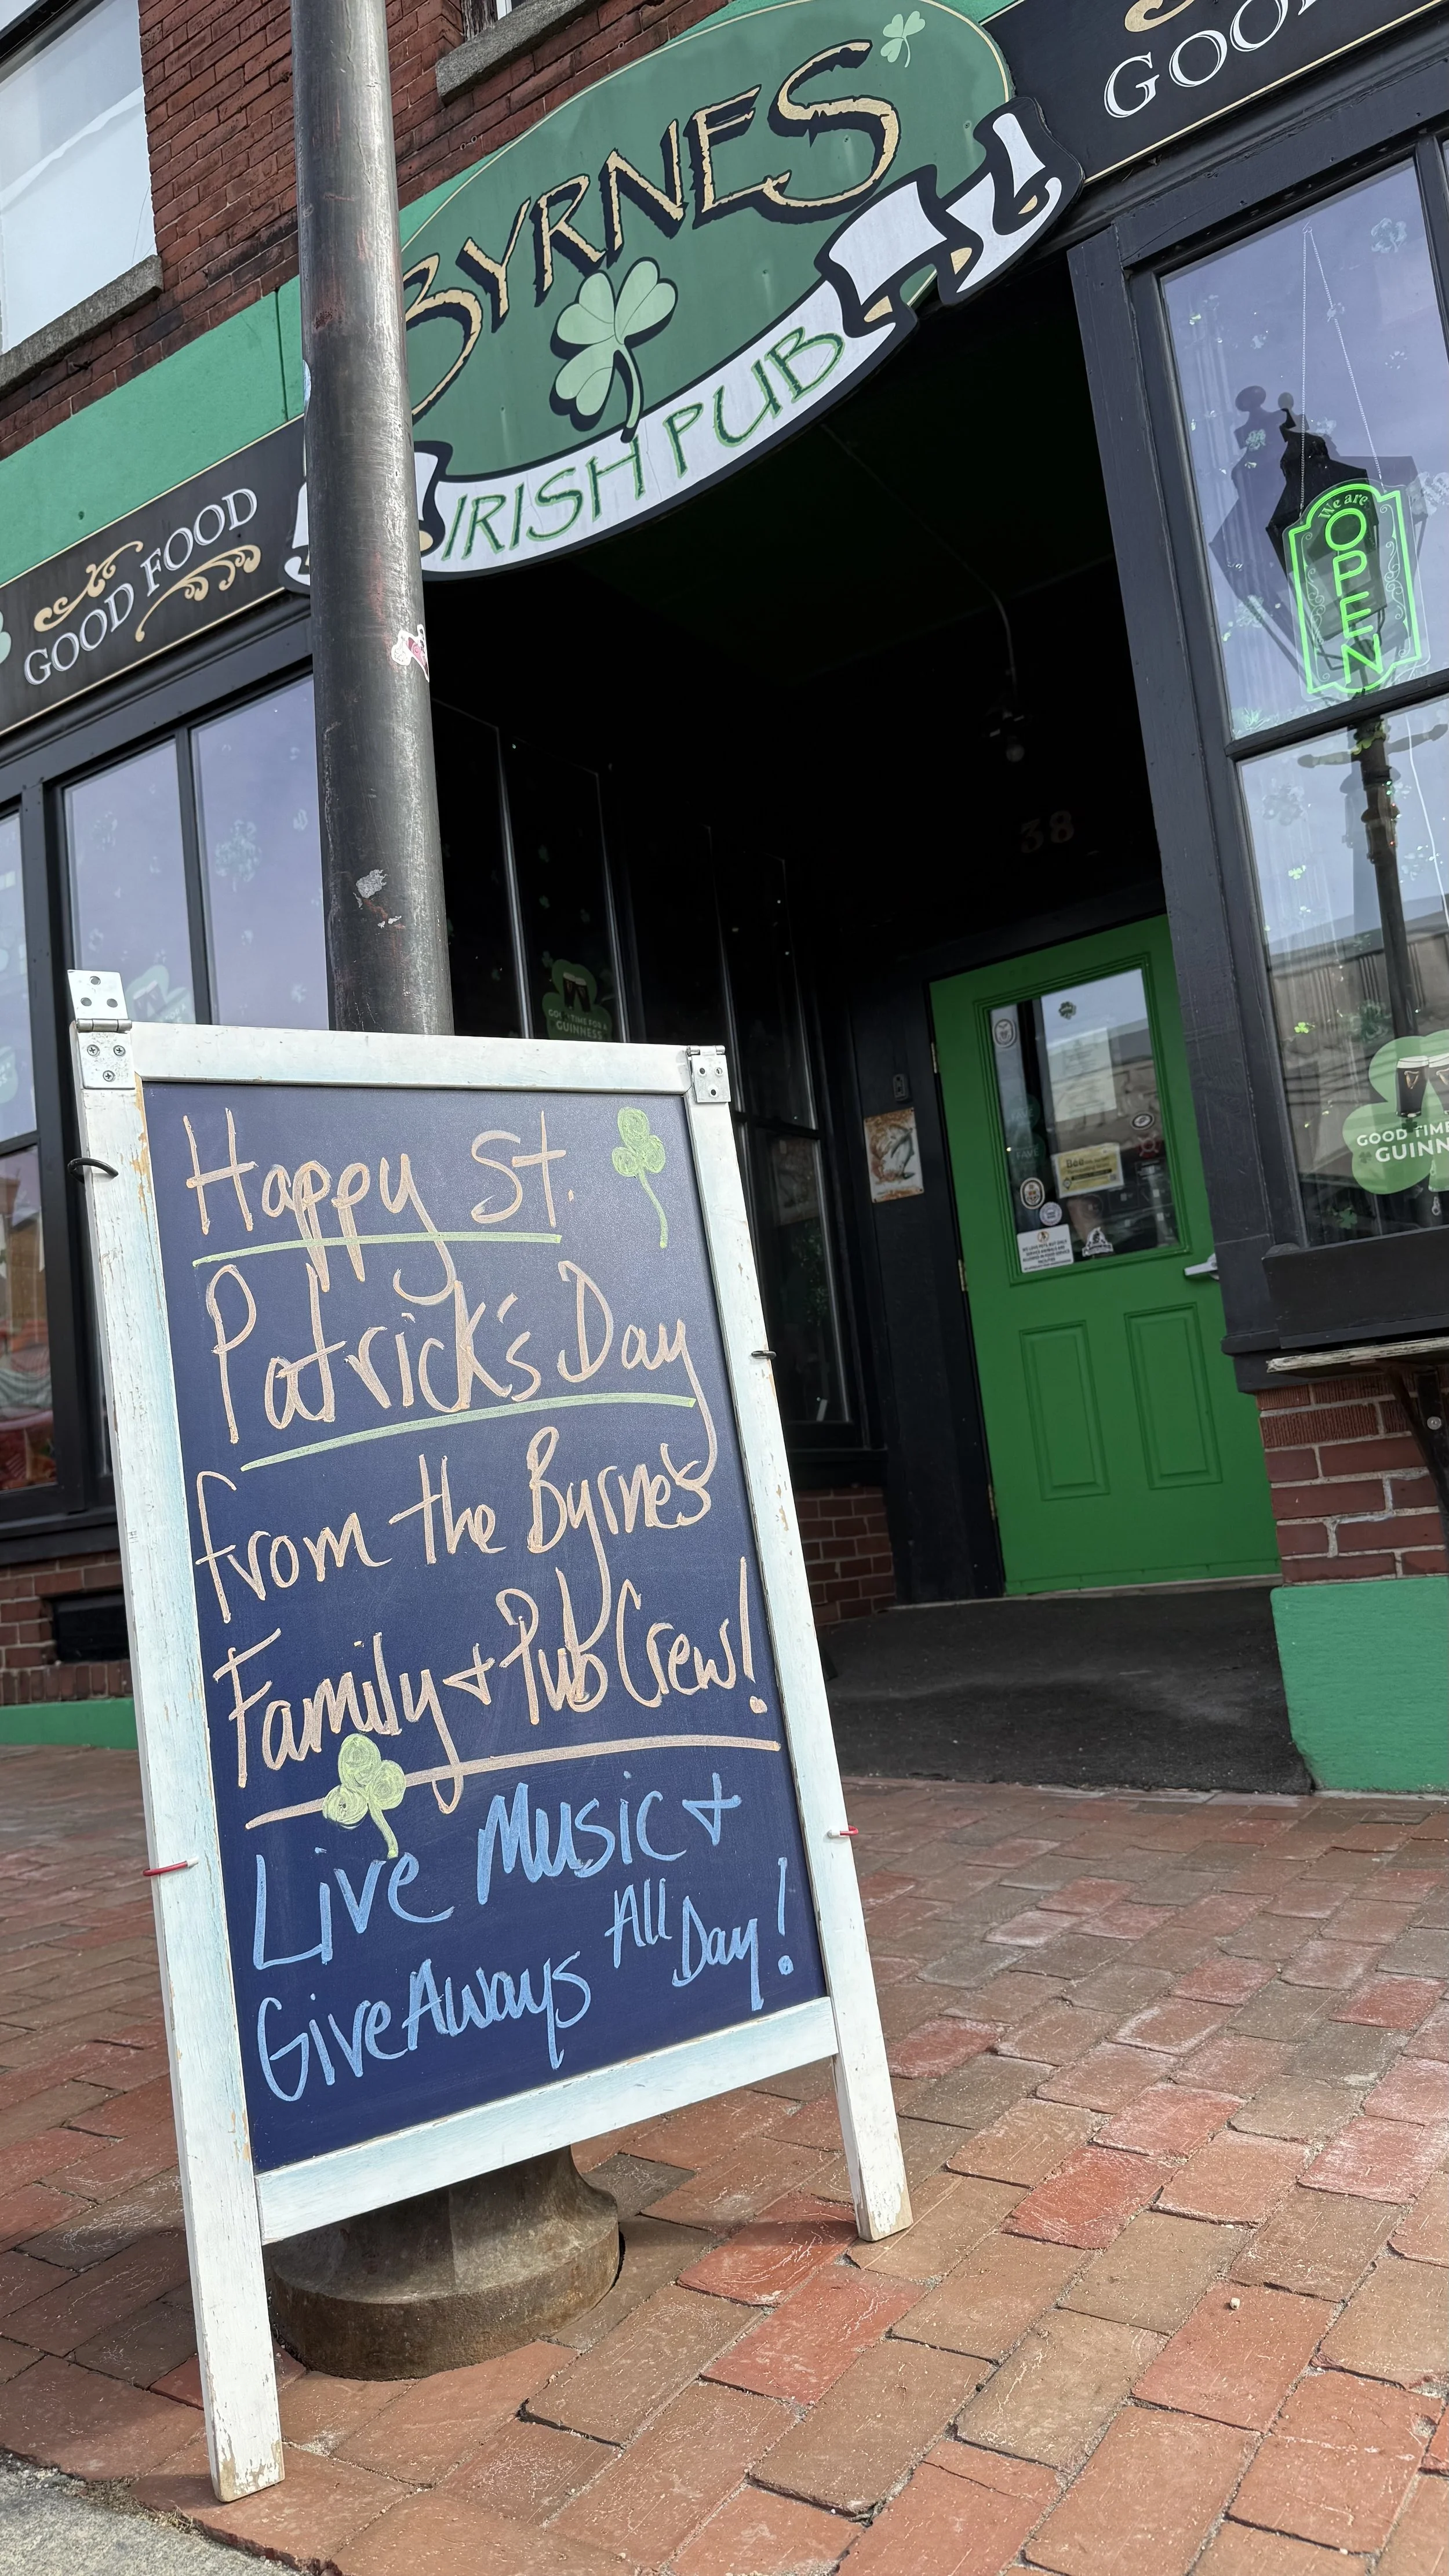 BYRNES
IRISH PUB
GOOD FOOD
GOO
We are
OPEN
38
GOOD TIME FOR A
GUINNESS
GOOD TIME
GUINN
Happy St.
Patrick's Day
from the Byrne's
Family + Pub Crew!
Live Music +
GiveAways All Day!